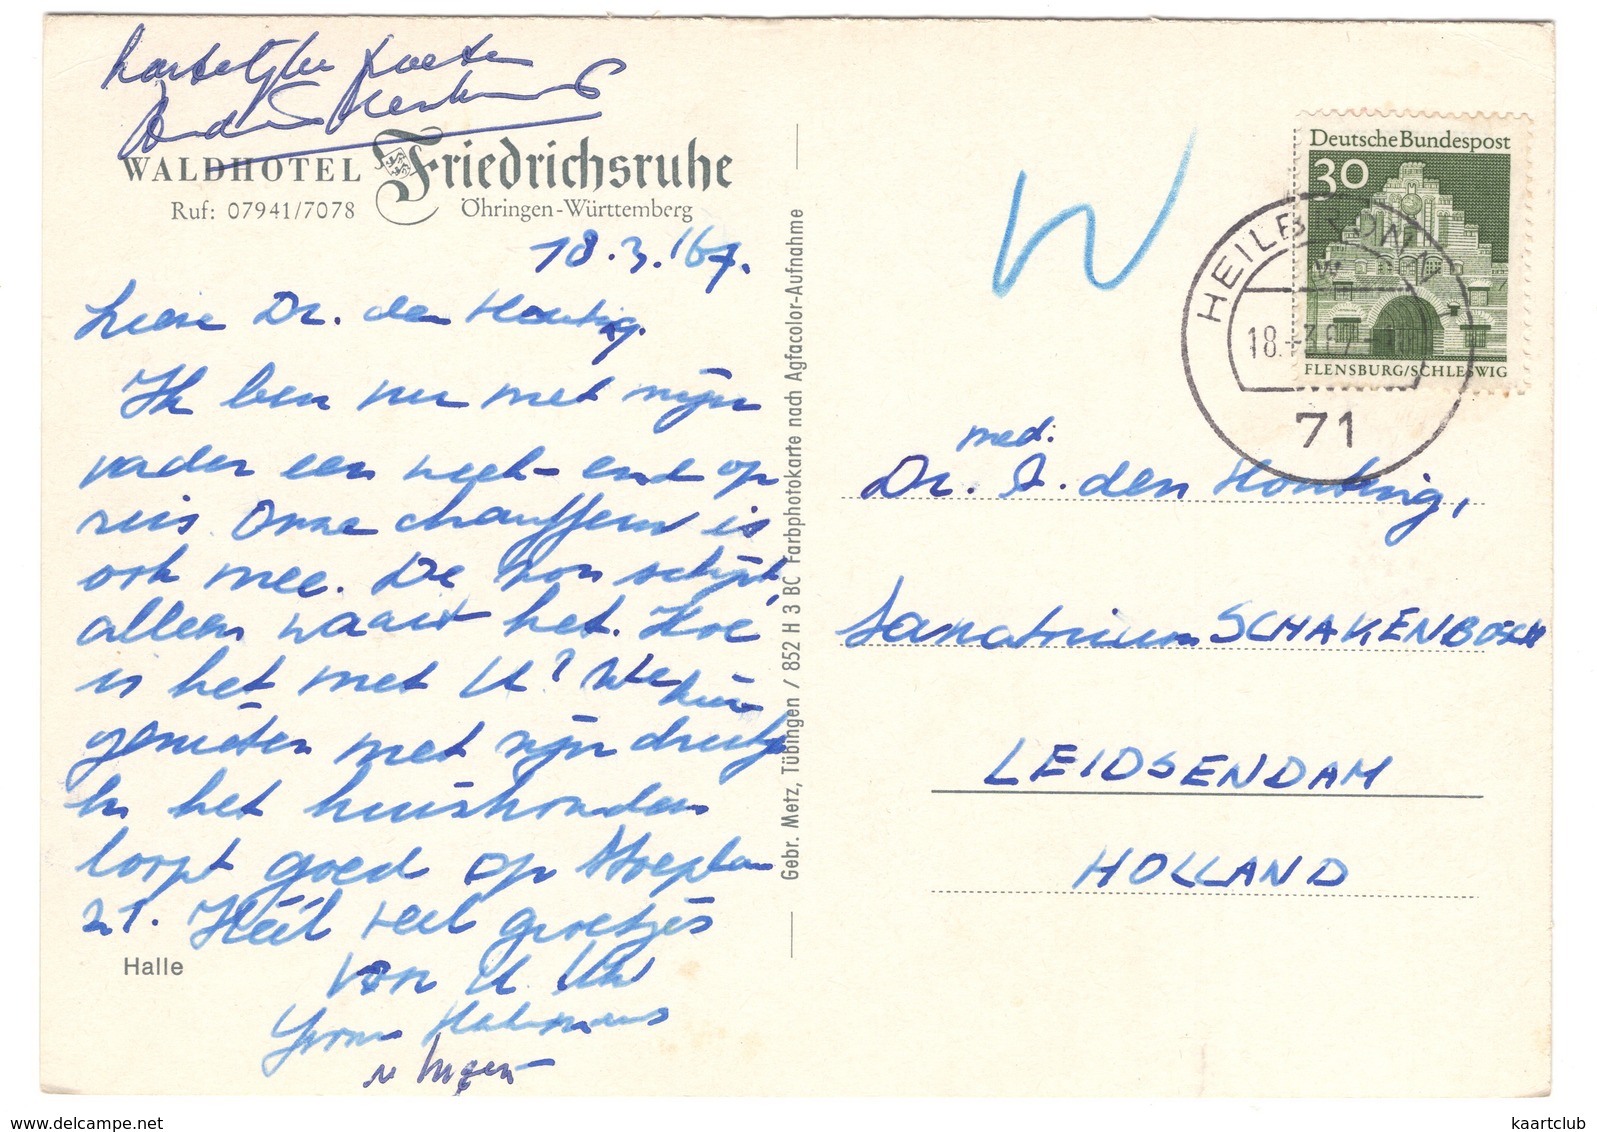 hartelijke groeten
WALDHOTEL Friedrichsruhe
Ruf: 07941/7078 Öhringen-Württemberg
18.3.'67.
Lieve Dr. den Houting.
Ik ben nu met mijn
vader een week-end op
reis Onze chauffeur is
ook mee. De zon schijnt,
alleen waait het. Hoe
is het met U? We
genieten met mijn
In het huishouden
loopt goed op
21. Heel veel groetjes
van U
Halle
Gebr. Metz, Tübingen / 852 H 3 BC Farbphotokarte nach Agfacolor-Aufnahme
Deutsche Bundespost
30
FLENSBURG/SCHLESWIG
HEILBRONN
18.-3.67
71
med.
Dr. A. den Houting,
Sanatorium SCHAKENBOSCH
LEIDSENDAM
HOLLAND
www.delcampe.net
kaartclub